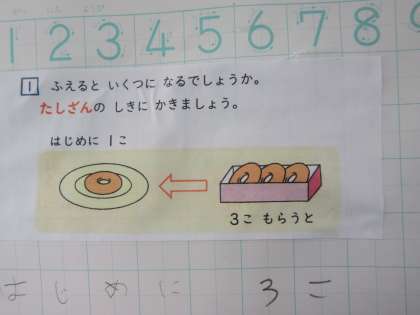 1 2 3 4 5 6 7 8 9
1 ふえると いくつに なるでしょうか。
たしざんの しきに かきましょう。
はじめに 1こ
3こ もらうと
はじめに 3こ